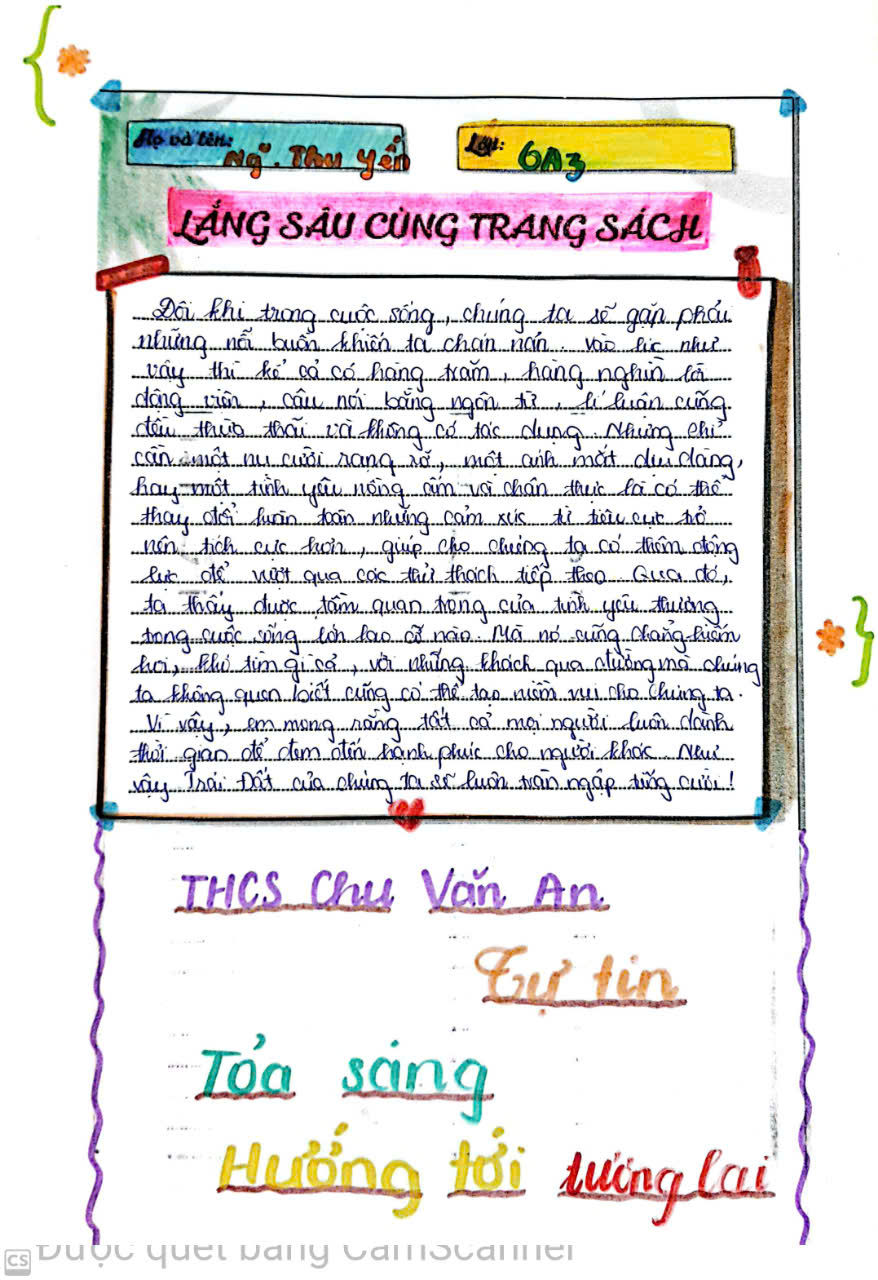 Họ và tên: Ng~. Thu Yến
Lớp: 6A3
LẮNG SÂU CÙNG TRANG SÁCH
Đôi khi trong cuộc sống, chúng ta sẽ gặp phải
những nỗi buồn khiến ta chán nản. Vào lúc như
vậy thì kể cả có hàng trăm, hàng nghìn lời
động viên, câu nói bằng ngôn từ, lí luận cũng
đều thừa thãi và không có tác dụng. Nhưng chỉ
cần một nụ cười rạng rỡ, một ánh mắt dịu dàng,
hay một tình yêu nồng ấm và chân thực là có thể
thay đổi luôn toàn những cảm xúc từ tiêu cực trở
nên tích cực hơn, giúp cho chúng ta có thêm động
lực để vượt qua các thử thách tiếp theo. Qua đó,
ta thấy được tầm quan trọng của tình yêu thương
trong cuộc sống lớn lao cỡ nào. Mà nó cũng chẳng hiếm
hoi, khó tìm gì cả, với những khách qua đường mà chúng
ta không quen biết cũng có thể tạo niềm vui cho chúng ta.
Vì vậy, em mong rằng tất cả mọi người luôn dành
thời gian để đem đến hạnh phúc cho người khác. Như
vậy Trái Đất của chúng ta sẽ luôn tràn ngập tiếng cười!
THCS Chu Văn An
Tự tin
Tỏa sáng
Hướng tới tương lai
CS Được quét bằng CamScanner